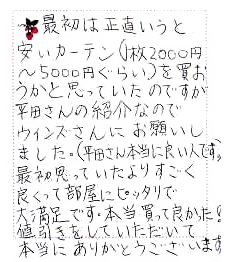 最初は正直いうと
安いカーテン(1枚2000円
～5000円ぐらい)を買お
うかと思っていたのですが
平田さんの紹介なので
ウインズさんにお願いし
ました。(平田さん本当に良い人です。)
最初思っていたよりすごく
良くって部屋にピッタリで
大満足です。本当買って良かった!
値引きをしていただいて
本当にありがとうございます